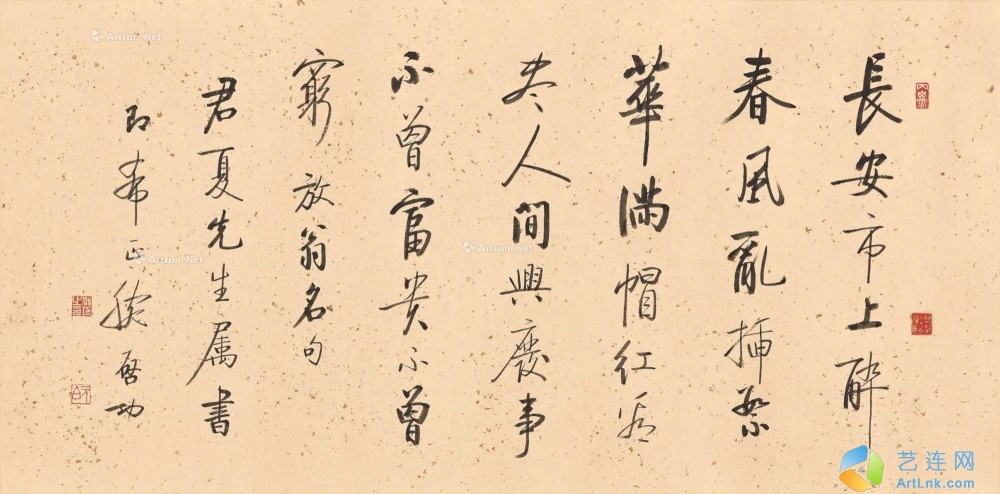 長安市上醉
春風亂插繁
華滿帽紅看
盡人間興廢事
不曾富貴不曾
窮放翁名句
君夏先生属書
即希正腕啓功
Artron.Net
Artron.Net
Artron.Net
Artron.Net
艺连网
ArtLnk.com